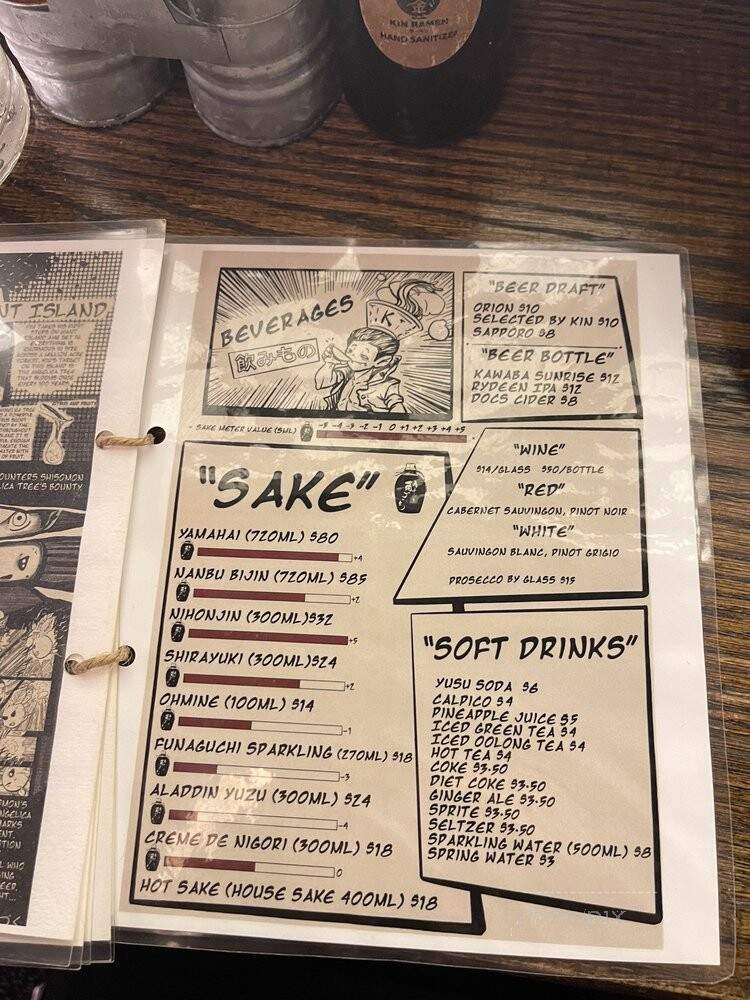 KIN RAMEN
HAND SANITIZER
NT ISLAND
OUNTERS SHISOMON
LICA TREE'S BOUNTY.
BEVERAGES
飲みもの
"BEER DRAFT"
ORION $10
SELECTED BY KIN $10
SAPPORO $8
"BEER BOTTLE"
KAWABA SUNRISE $12
RYDEEN IPA $12
DOCS CIDER $8
- SAKE METER VALUE (SMV) -5 -4 -3 -2 -1 0 +1 +2 +3 +4 +5
"SAKE"
YAMAHAI (720ML) $80
+4
NANBU BIJIN (720ML) $85
+2
NIHONJIN (300ML)$32
+5
SHIRAYUKI (300ML)$24
+2
OHMINE (100ML) $14
-1
FUNAGUCHI SPARKLING (270ML) $18
-3
ALADDIN YUZU (300ML) $24
-4
CREME DE NIGORI (300ML) $18
0
HOT SAKE (HOUSE SAKE 400ML) $18
"WINE"
$14/GLASS $50/BOTTLE
"RED"
CABERNET SAUVINGON, PINOT NOIR
"WHITE"
SAUVINGON BLANC, PINOT GRIGIO
PROSECCO BY GLASS $15
"SOFT DRINKS"
YUSU SODA $6
CALPICO $4
PINEAPPLE JUICE $5
ICED GREEN TEA $4
ICED OOLONG TEA $4
HOT TEA $4
COKE $3.50
DIET COKE $3.50
GINGER ALE $3.50
SPRITE $3.50
SELTZER $3.50
SPARKLING WATER (500ML) $8
SPRING WATER $3